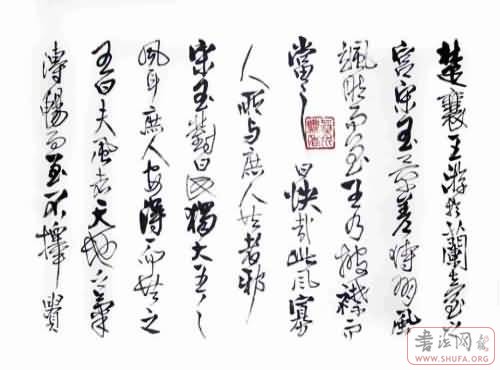 楚襄王游於蘭臺之
宮宋玉景差侍有風
颯然而至王乃披襟而
當之曰快哉此風寡
人所與庶人共者邪
宋玉對曰此獨大王之
風耳庶人安得而共之
王曰夫風者天地之氣
溥暢而至不擇貴
WWW.SHUFA.ORG